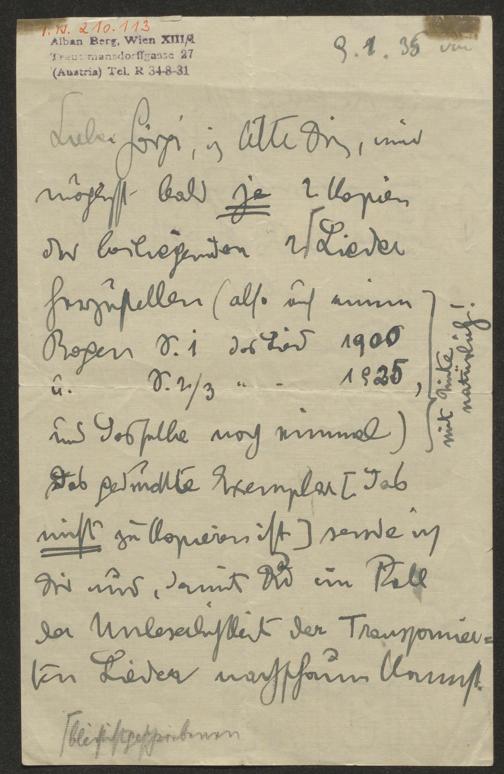 I.N. 210.113
Alban Berg, Wien XIII/1
Trauttmansdorffgasse 27
(Austria) Tel. R 34-8-31
9.1.35
Lieber Görgi, ich bitte Dich, mir
möglichst bald je 2 Kopien
der beiliegenden 2 Lieder
herzustellen (also auf einem
Bogen S. 1 das Lied 1900
u. S. 2/3 " - 1925,
und dasselbe noch einmal)
mit Tinte
natürlich!
Das gedruckte Exemplar [das
nicht zu kopieren ist] sende ich
Dir nur, damit Du im Fall
der Unleserlichkeit der Transponier=
ten Lieder nachschaun kannst.
bleistiftgeschriebenen